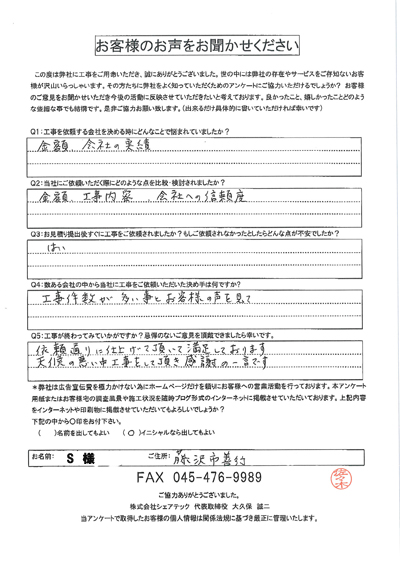 お客様のお声をお聞かせください
この度は弊社に工事をご用命いただき、誠にありがとうございました。世の中には弊社の存在やサービスをご存知ないお客
様が沢山いらっしゃいます。その方たちに弊社をよく知っていただくためのアンケートにご協力いただけるでしょうか？お客様
のご意見をお聞かせいただき今後の活動に反映させていただきたいと考えております。良かったこと、嬉しかったことどのよう
な些細な事でも結構です。是非ご協力お願い致します。（出来るだけ具体的に書いていただければ幸いです）
Q1:工事を依頼する会社を決める時にどんなことで悩まれていましたか？
金額、会社の実績
Q2:当社にご依頼いただく際にどのような点を比較・検討されましたか？
金額、工事内容、会社への信頼度
Q3:お見積り提出後すぐに工事をご依頼されましたか？もしご依頼されなかったとしたらどんな点が不安でしたか？
はい
Q4:数ある会社の中から当社に工事をご依頼いただいた決め手は何ですか？
工事件数が多い事とお客様の声を見て
Q5:工事が終わってみていかがですか？忌憚のないご意見を頂戴できましたら幸いです。
依頼通りに仕上げて頂いて満足しております
天候の悪い中工事をして頂き感謝の一言です
＊弊社は広告宣伝費を極力かけない為にホームページだけを頼りにお客様への営業活動を行っております。本アンケート
用紙またはお客様宅の調査風景や施工状況を随時ブログ形式のインターネットに掲載させていただいております。上記内容
をインターネットや印刷物に掲載させていただいてもよろしいでしょうか？
下記の中から○印をお付下さい。
（　）名前を出してもよい　（○）イニシャルなら出してもよい
お名前: S 様 ご住所: 藤沢市善行
FAX 045-476-9989
佐々木
ご協力ありがとうございました。
株式会社シェアテック 代表取締役 大久保 誠二
当アンケートで取得したお客様の個人情報は関係法規に基づき厳正に管理いたします。